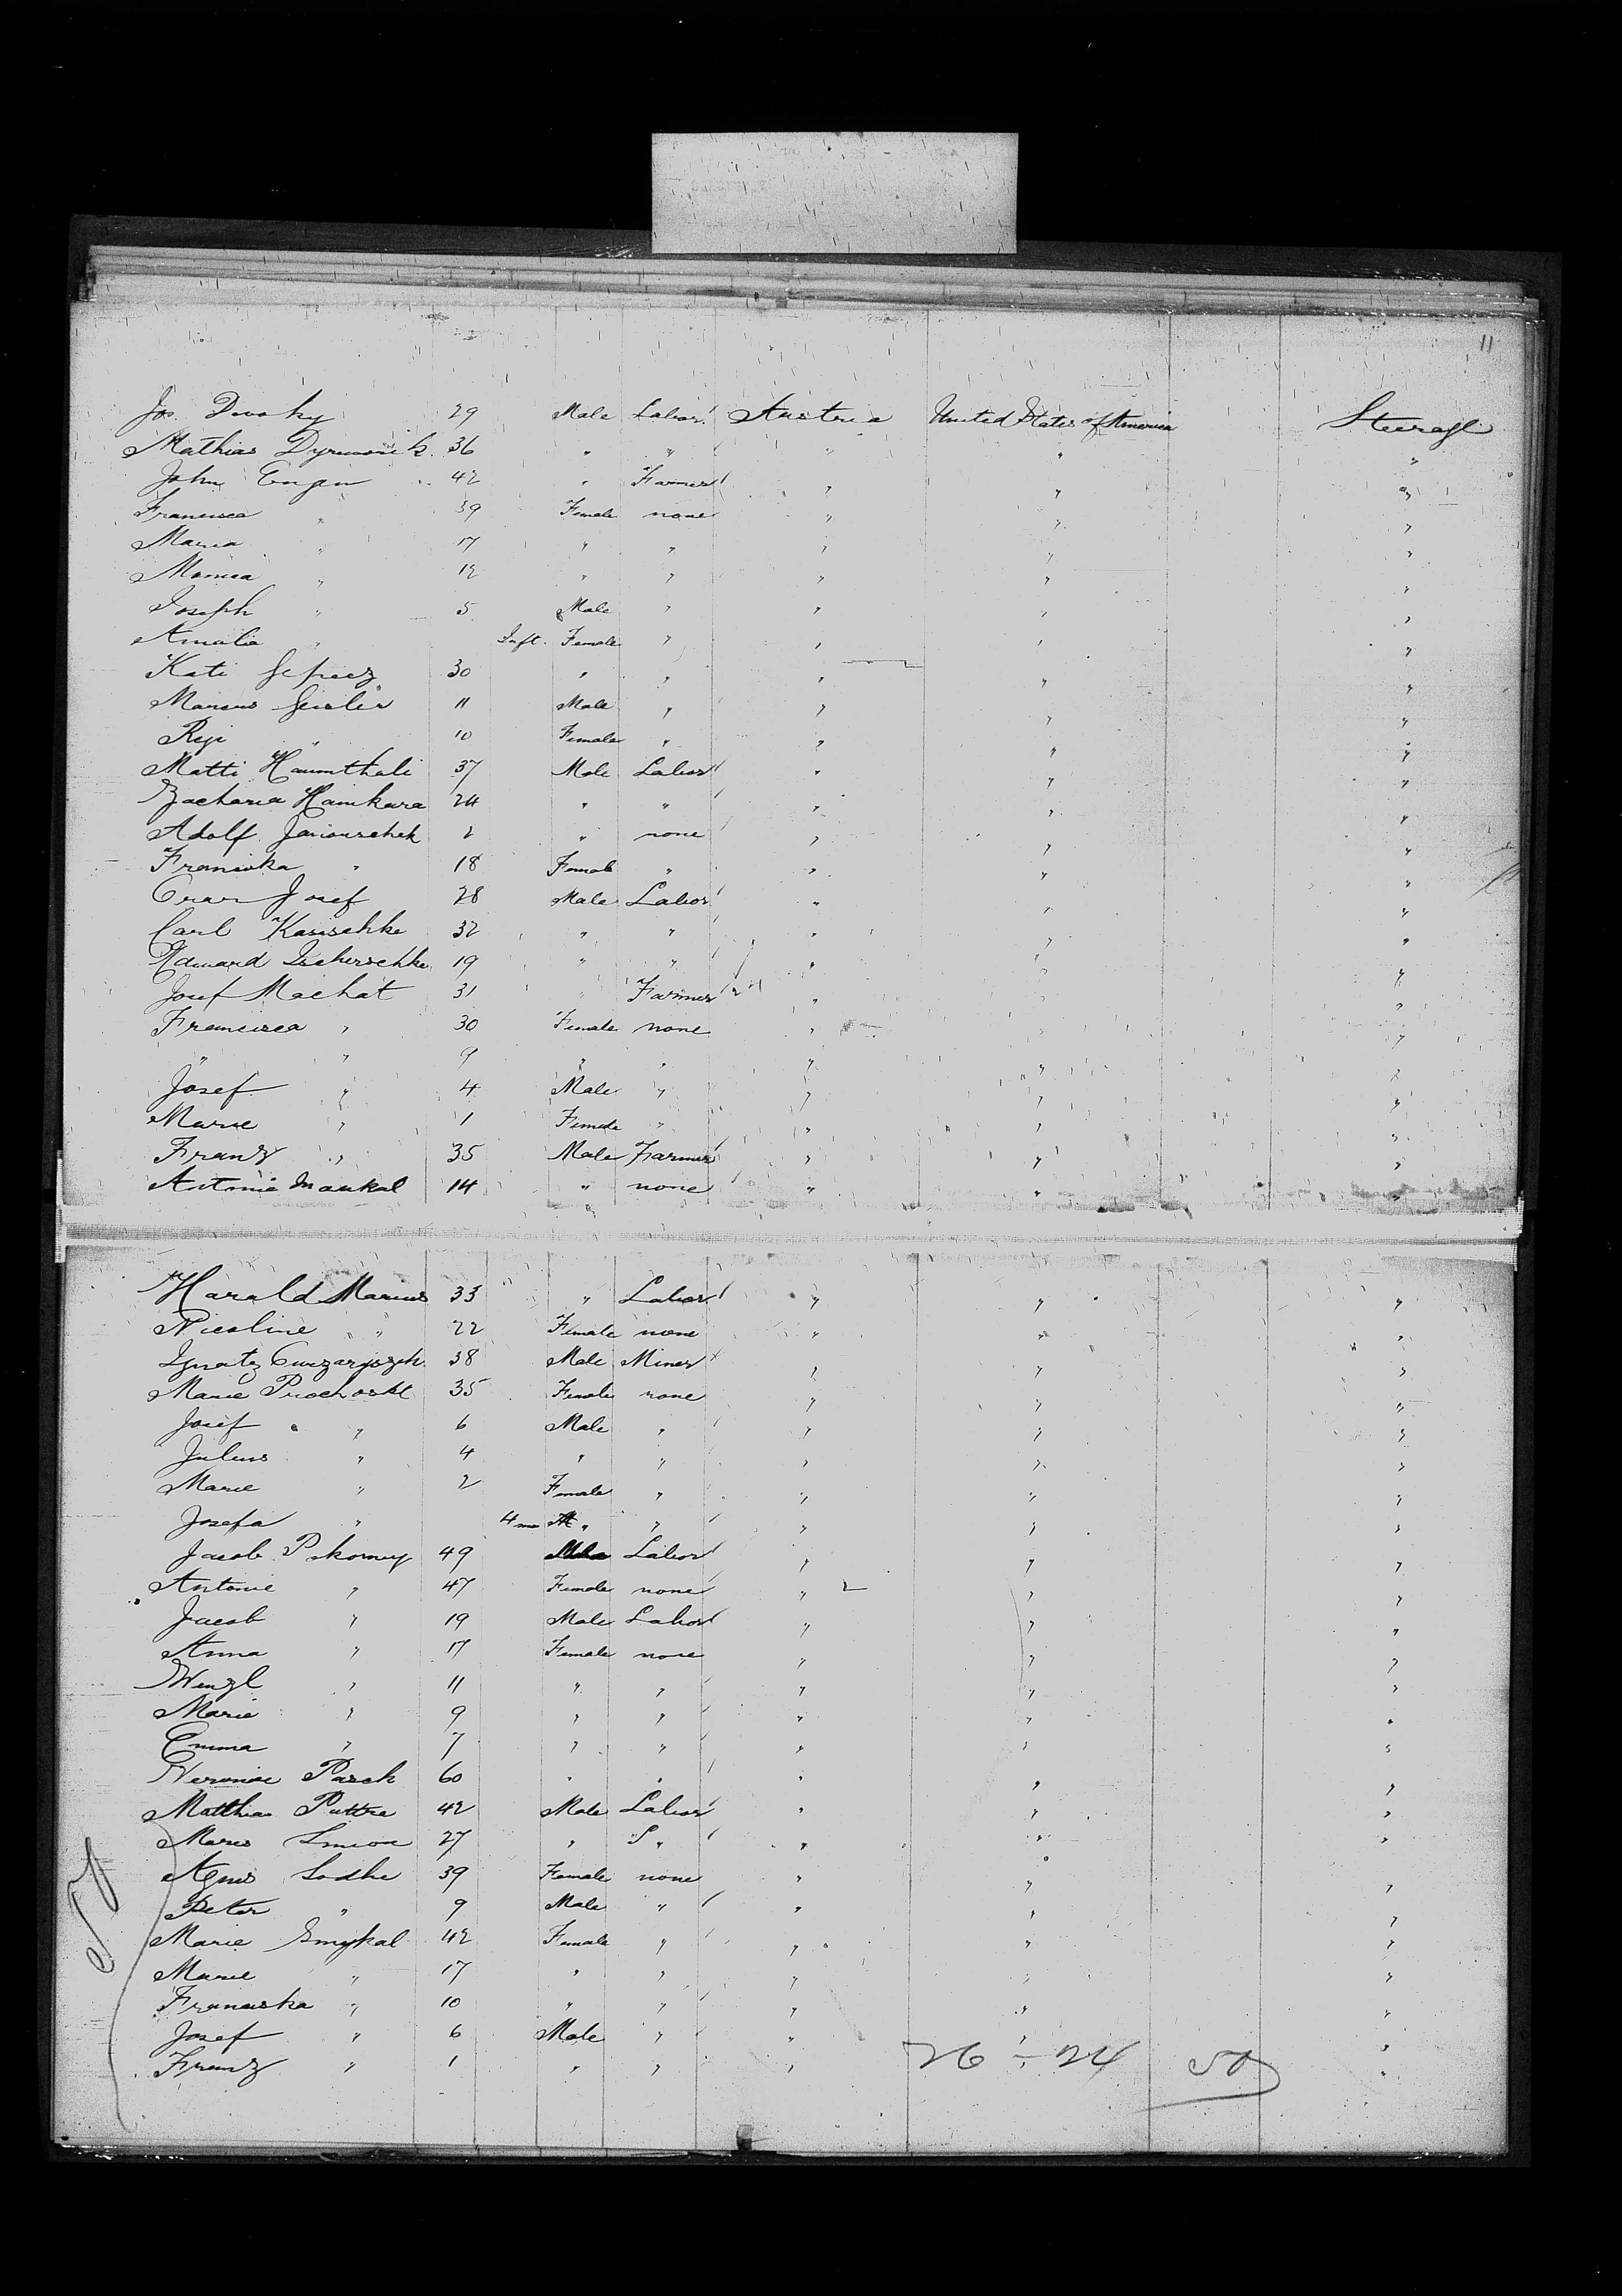 11
Jos. Dvorky 29 Male Labor Austria United States of America Steerage
Mathias 36 " " " " "
John Engn 42 " Farmer " " "
Francisca " 39 Female none " " "
Maria " 17 " " " " "
Monica " 12 " " " " "
Joseph " 5 Male " " " "
Amalia " Inft. Female " " " "
Kati 30 " " " " "
Marcus Geisler 11 Male " " " "
Resi " 10 Female " " " "
Matti Haumthali 37 Male Labor " " "
Zacharia Hamkara 24 " " " " "
Adolf Janouschek 2 " none " " "
Franciska " 18 Female " " " "
Josef 28 Male Labor " " "
Carl Kasischke 32 " " " " "
Edward 19 " " " " "
Josef Machat 31 " Farmer " " "
Francisca " 30 Female none " " "
" " 9 " " " " "
Josef " 4 Male " " " "
Marie " 1 Female " " " "
Franz " 35 Male Farmer " " "
Antonie Maukal 14 " none " " "
Harald Marius 33 " Labor " " "
Nicoline " 22 Female none " " "
Ignatz 38 Male Miner " " "
Marie 35 Female none " " "
Josef " 6 Male " " " "
Julius " 4 " " " " "
Marie " 2 Female " " " "
Josefa " 4 mo " " " " "
Jacob Pokorney 49 Male Labor " " "
Antonie " 47 Female none " " "
Jacob " 19 Male Labor " " "
Anna " 17 Female none " " "
Wenzl " 11 " " " " "
Marie " 9 " " " " "
Emma " 7 " " " " "
Veronie Pasek 60 " " " " "
Matthias Puttre 42 Male Labor " " "
Mares Simon 27 " " " " "
Agnes Sodhe 39 Female none " " "
Peter " 9 Male " " " "
Marie Smykal 42 Female " " " "
Marie " 17 " " " " "
Franciska " 10 " " " " "
Josef " 6 Male " " " "
Franz " 1 " " " " "
26 - 24 50
50